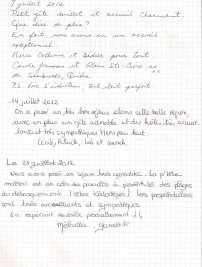 7 juillet 2012
Petit gîte douillet et accueil charmant
Que dire de plus ?
En fait, nous avons eu un accueil
exceptionnel
Merci Catherine et Didier pour tout.
Carole francois et Alain Ste-Croix xx
de Sherbrooke, Québec
P.S. Vive l'invitation, tout était parfait
14 juillet 2012
On a passé un très bon séjour dans cette belle région,
avec en plus un gîte adorable et des hôtes très accueil-
lants et très sympathiques Merci pour tout.
Cécile, Patrick, Léa et Sarah.
Les 21 juillet 2012
Nous avons passé un séjour très agréable. La p'tite
maison est un petit paradis à proximité des plages
du débarquement (sites historiques) les propriétaires
sont très accueillants et sympathiques
En espérant revenir prochainement
Yannick